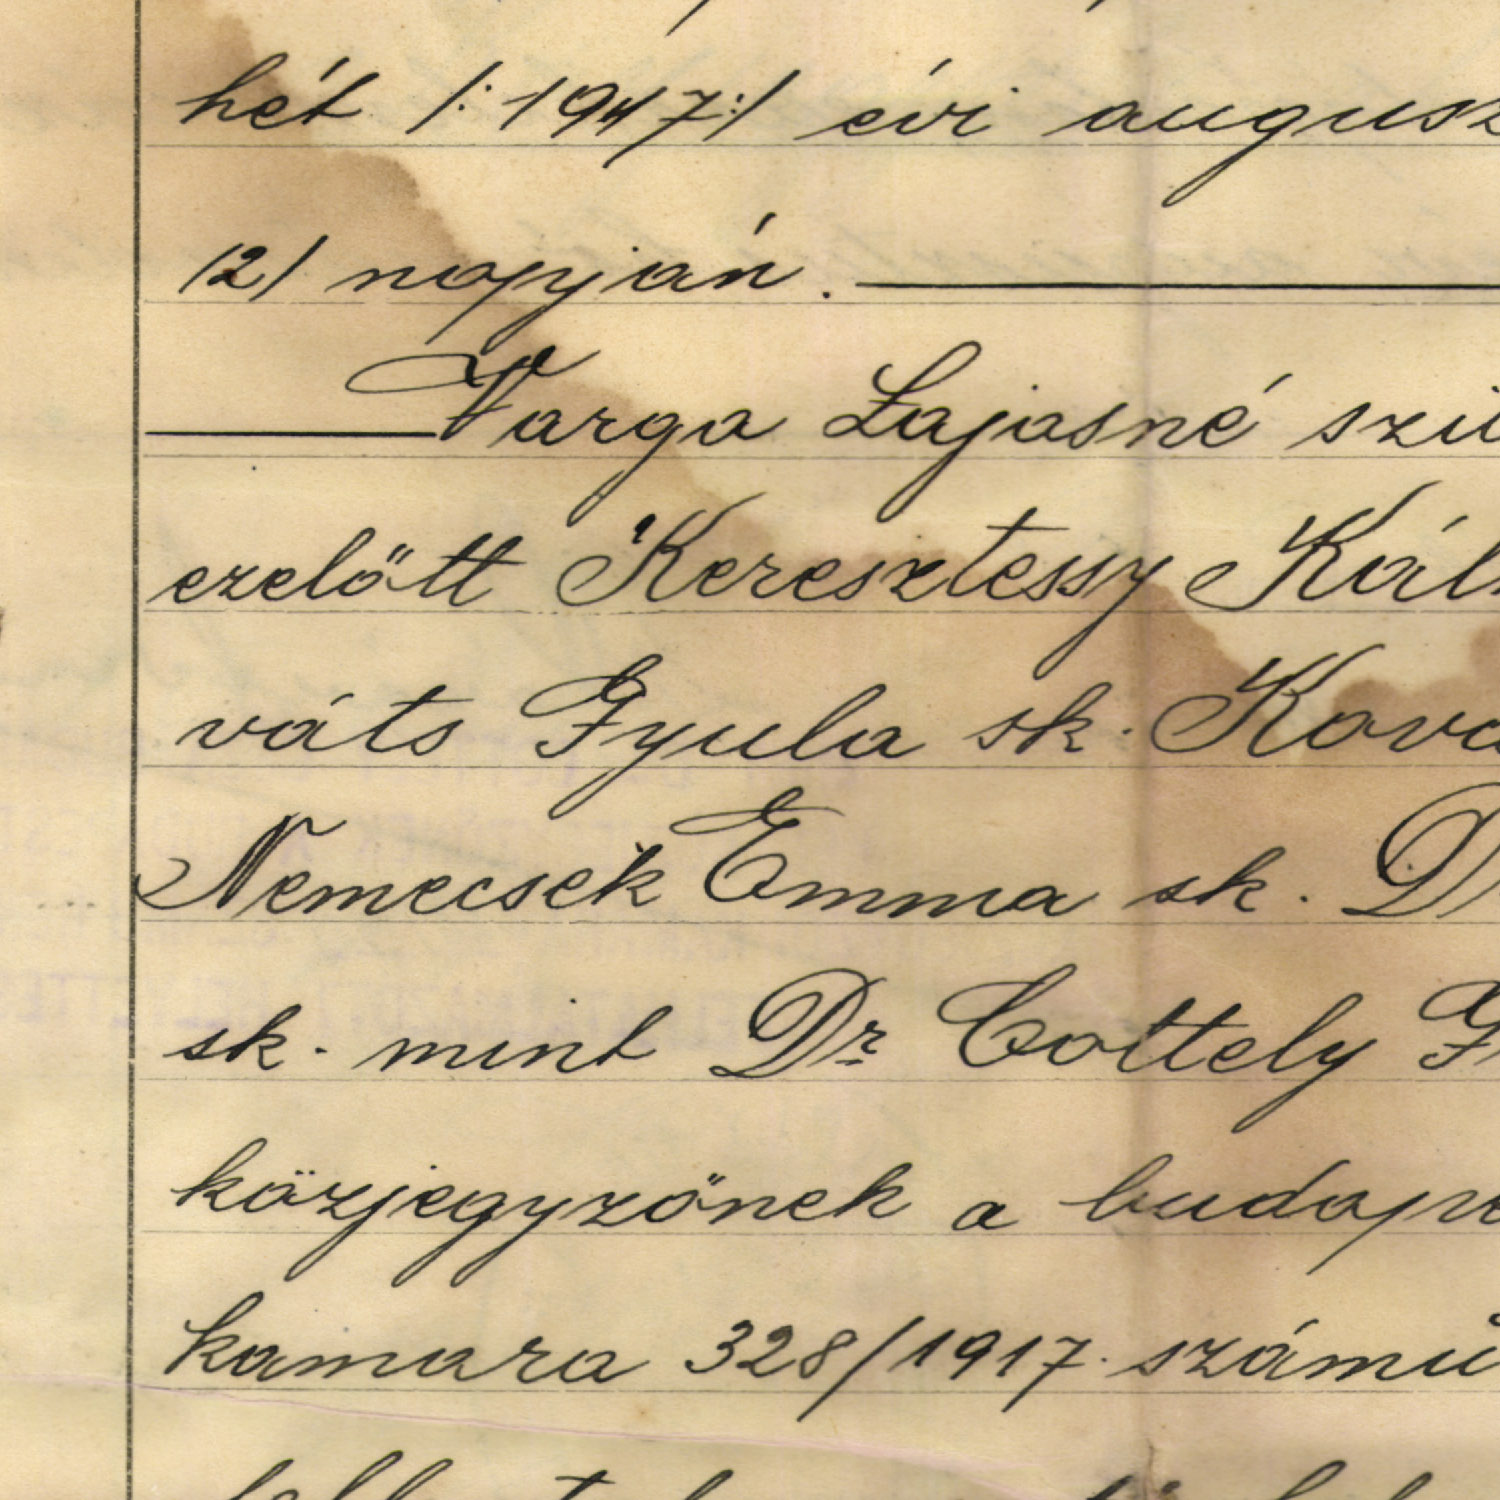 hét /:1947:/ évi augusz
/2/ napján.
Varga Lajosné szü
ezelőtt Keresztessy Kál
váts Gyula sk. Kova
Nemecsek Emma sk. D
sk. mint Dr Cottely
közjegyzőnek a budape
kamara 328/1917. számú